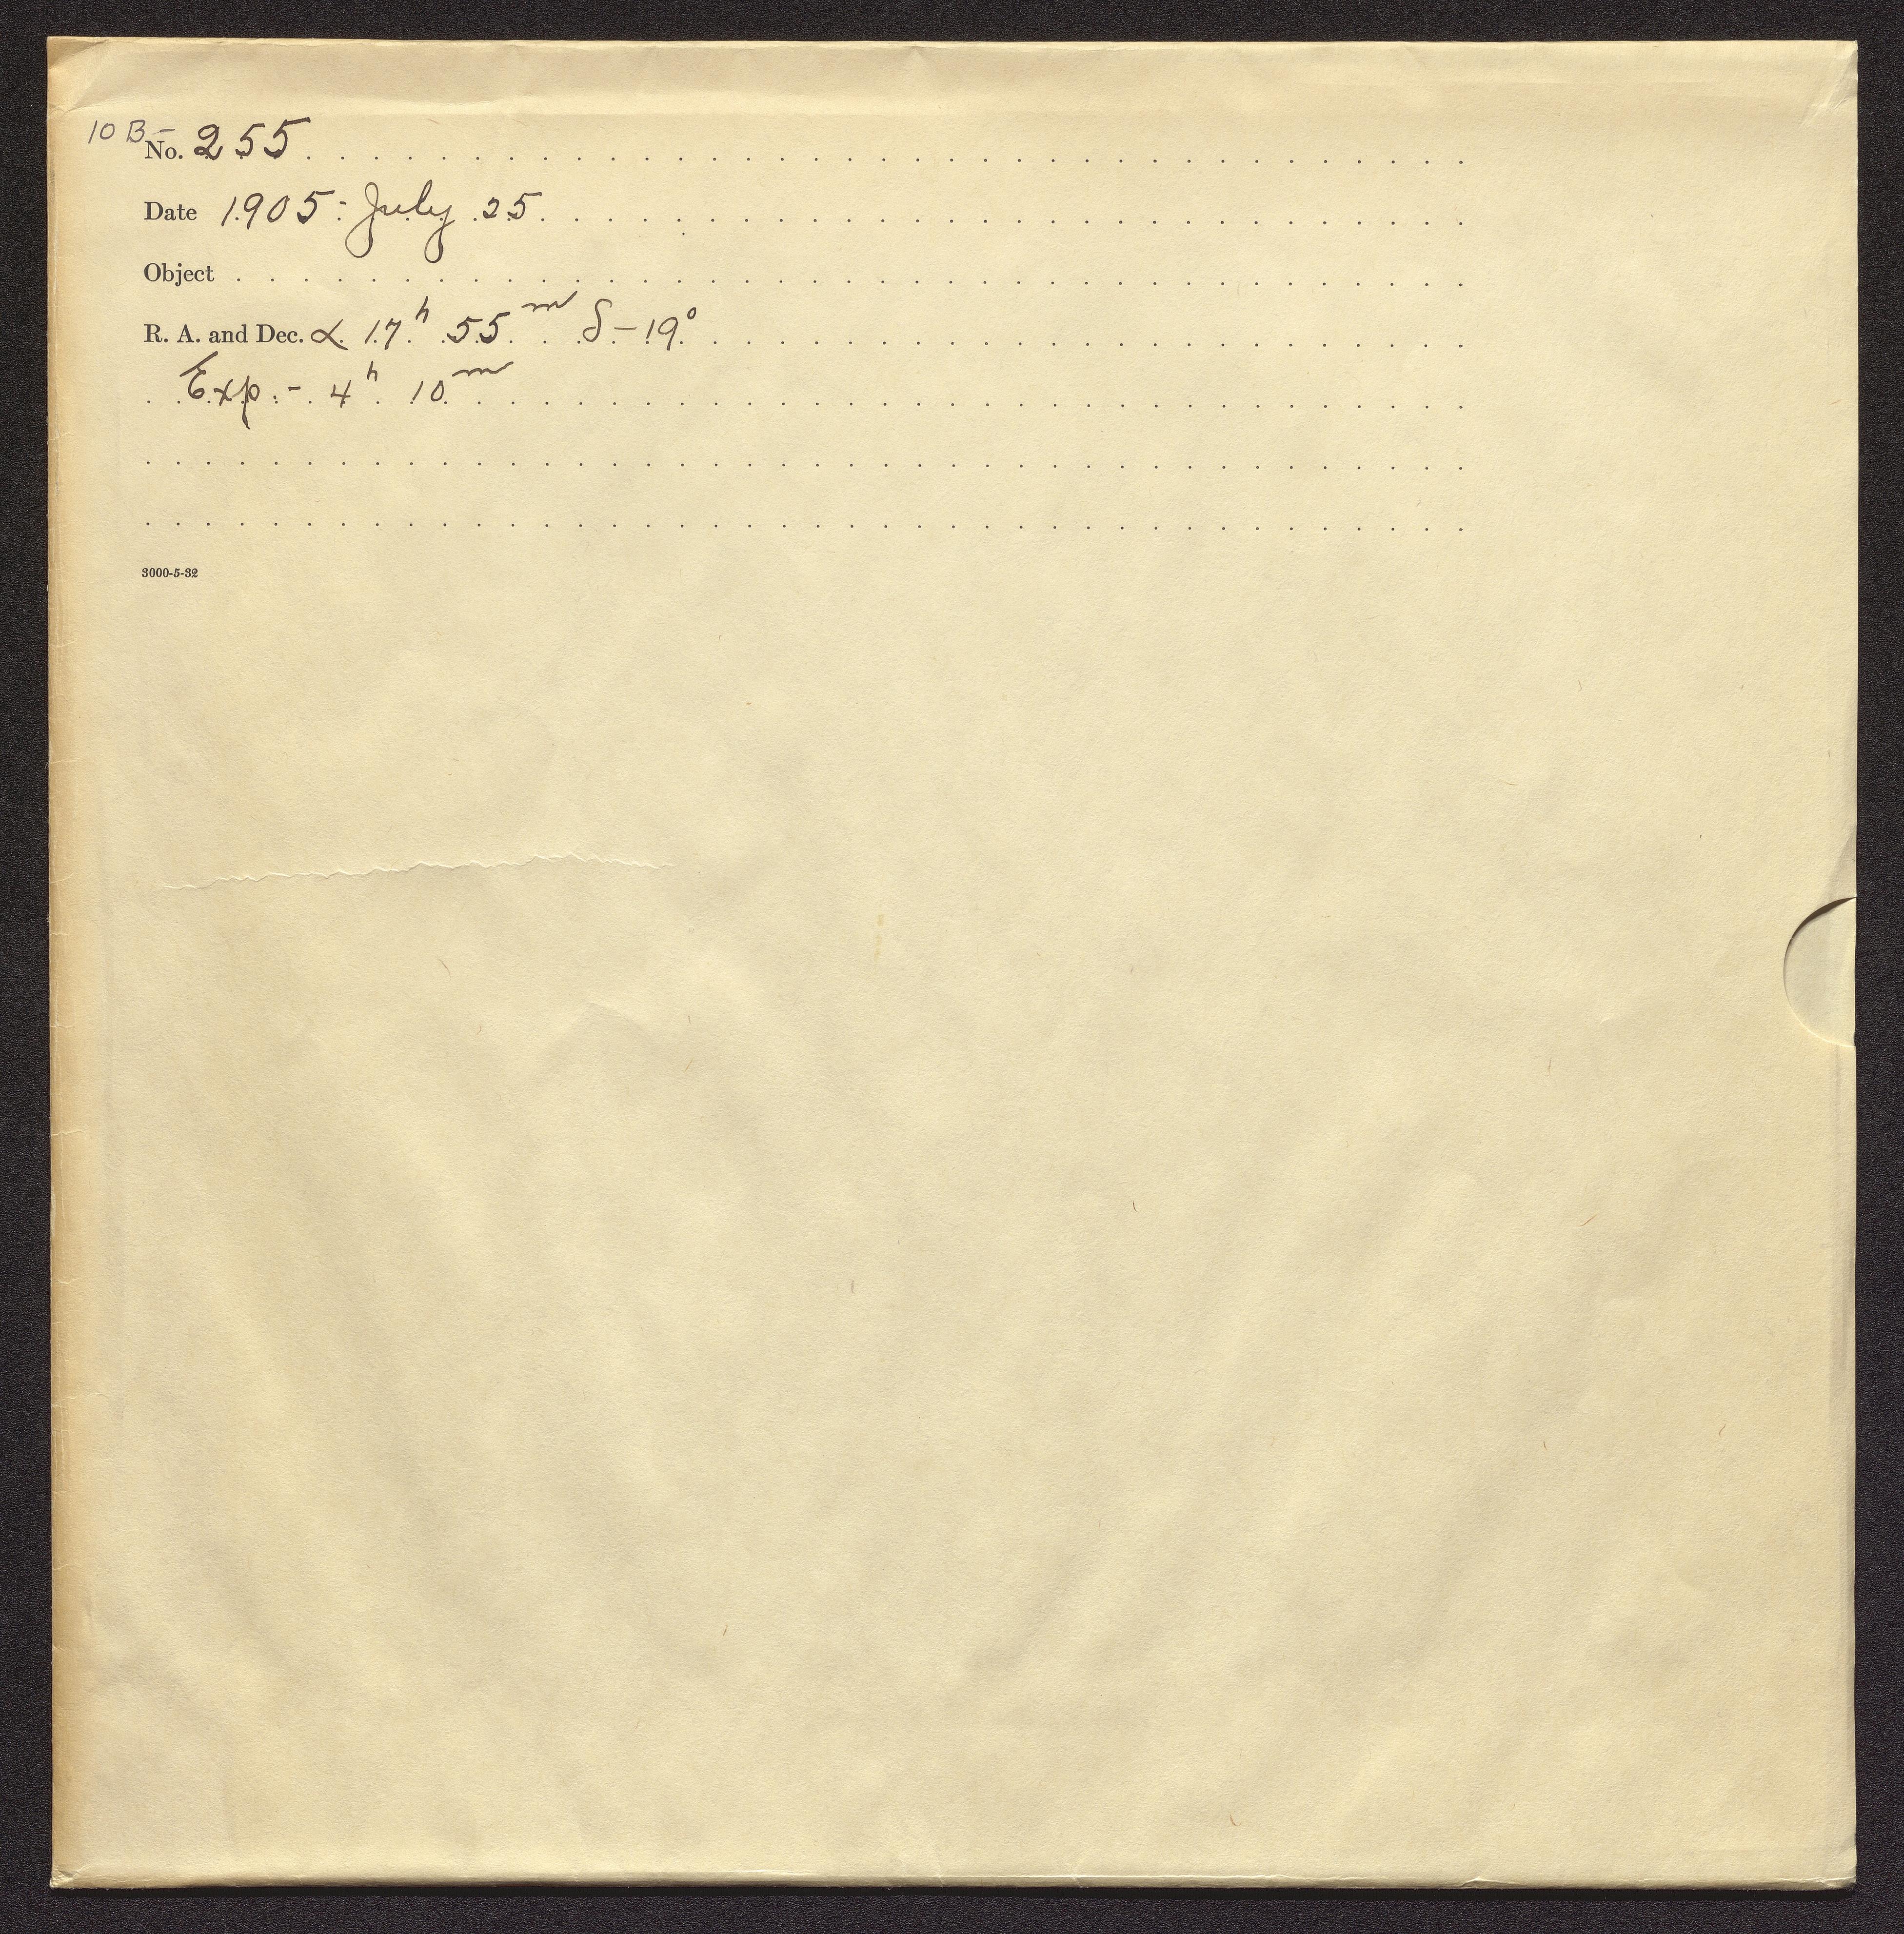 10 B- No. 255
Date 1905 - July 25
Object
R. A. and Dec. α 17ʰ 55ᵐ δ -19°
Exp. - 4ʰ 10ᵐ
3000-5-32